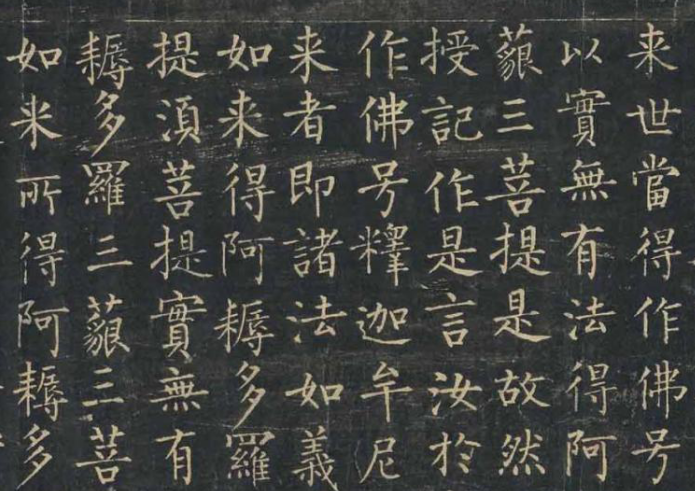 来世當得作佛号
以實無有法得阿
藐三菩提是故然
授記作是言汝於
作佛号釋迦牟尼
来者即諸法如義
如来得阿耨多羅
提湏菩提實無有
耨多羅三藐三菩
如来所得阿耨多